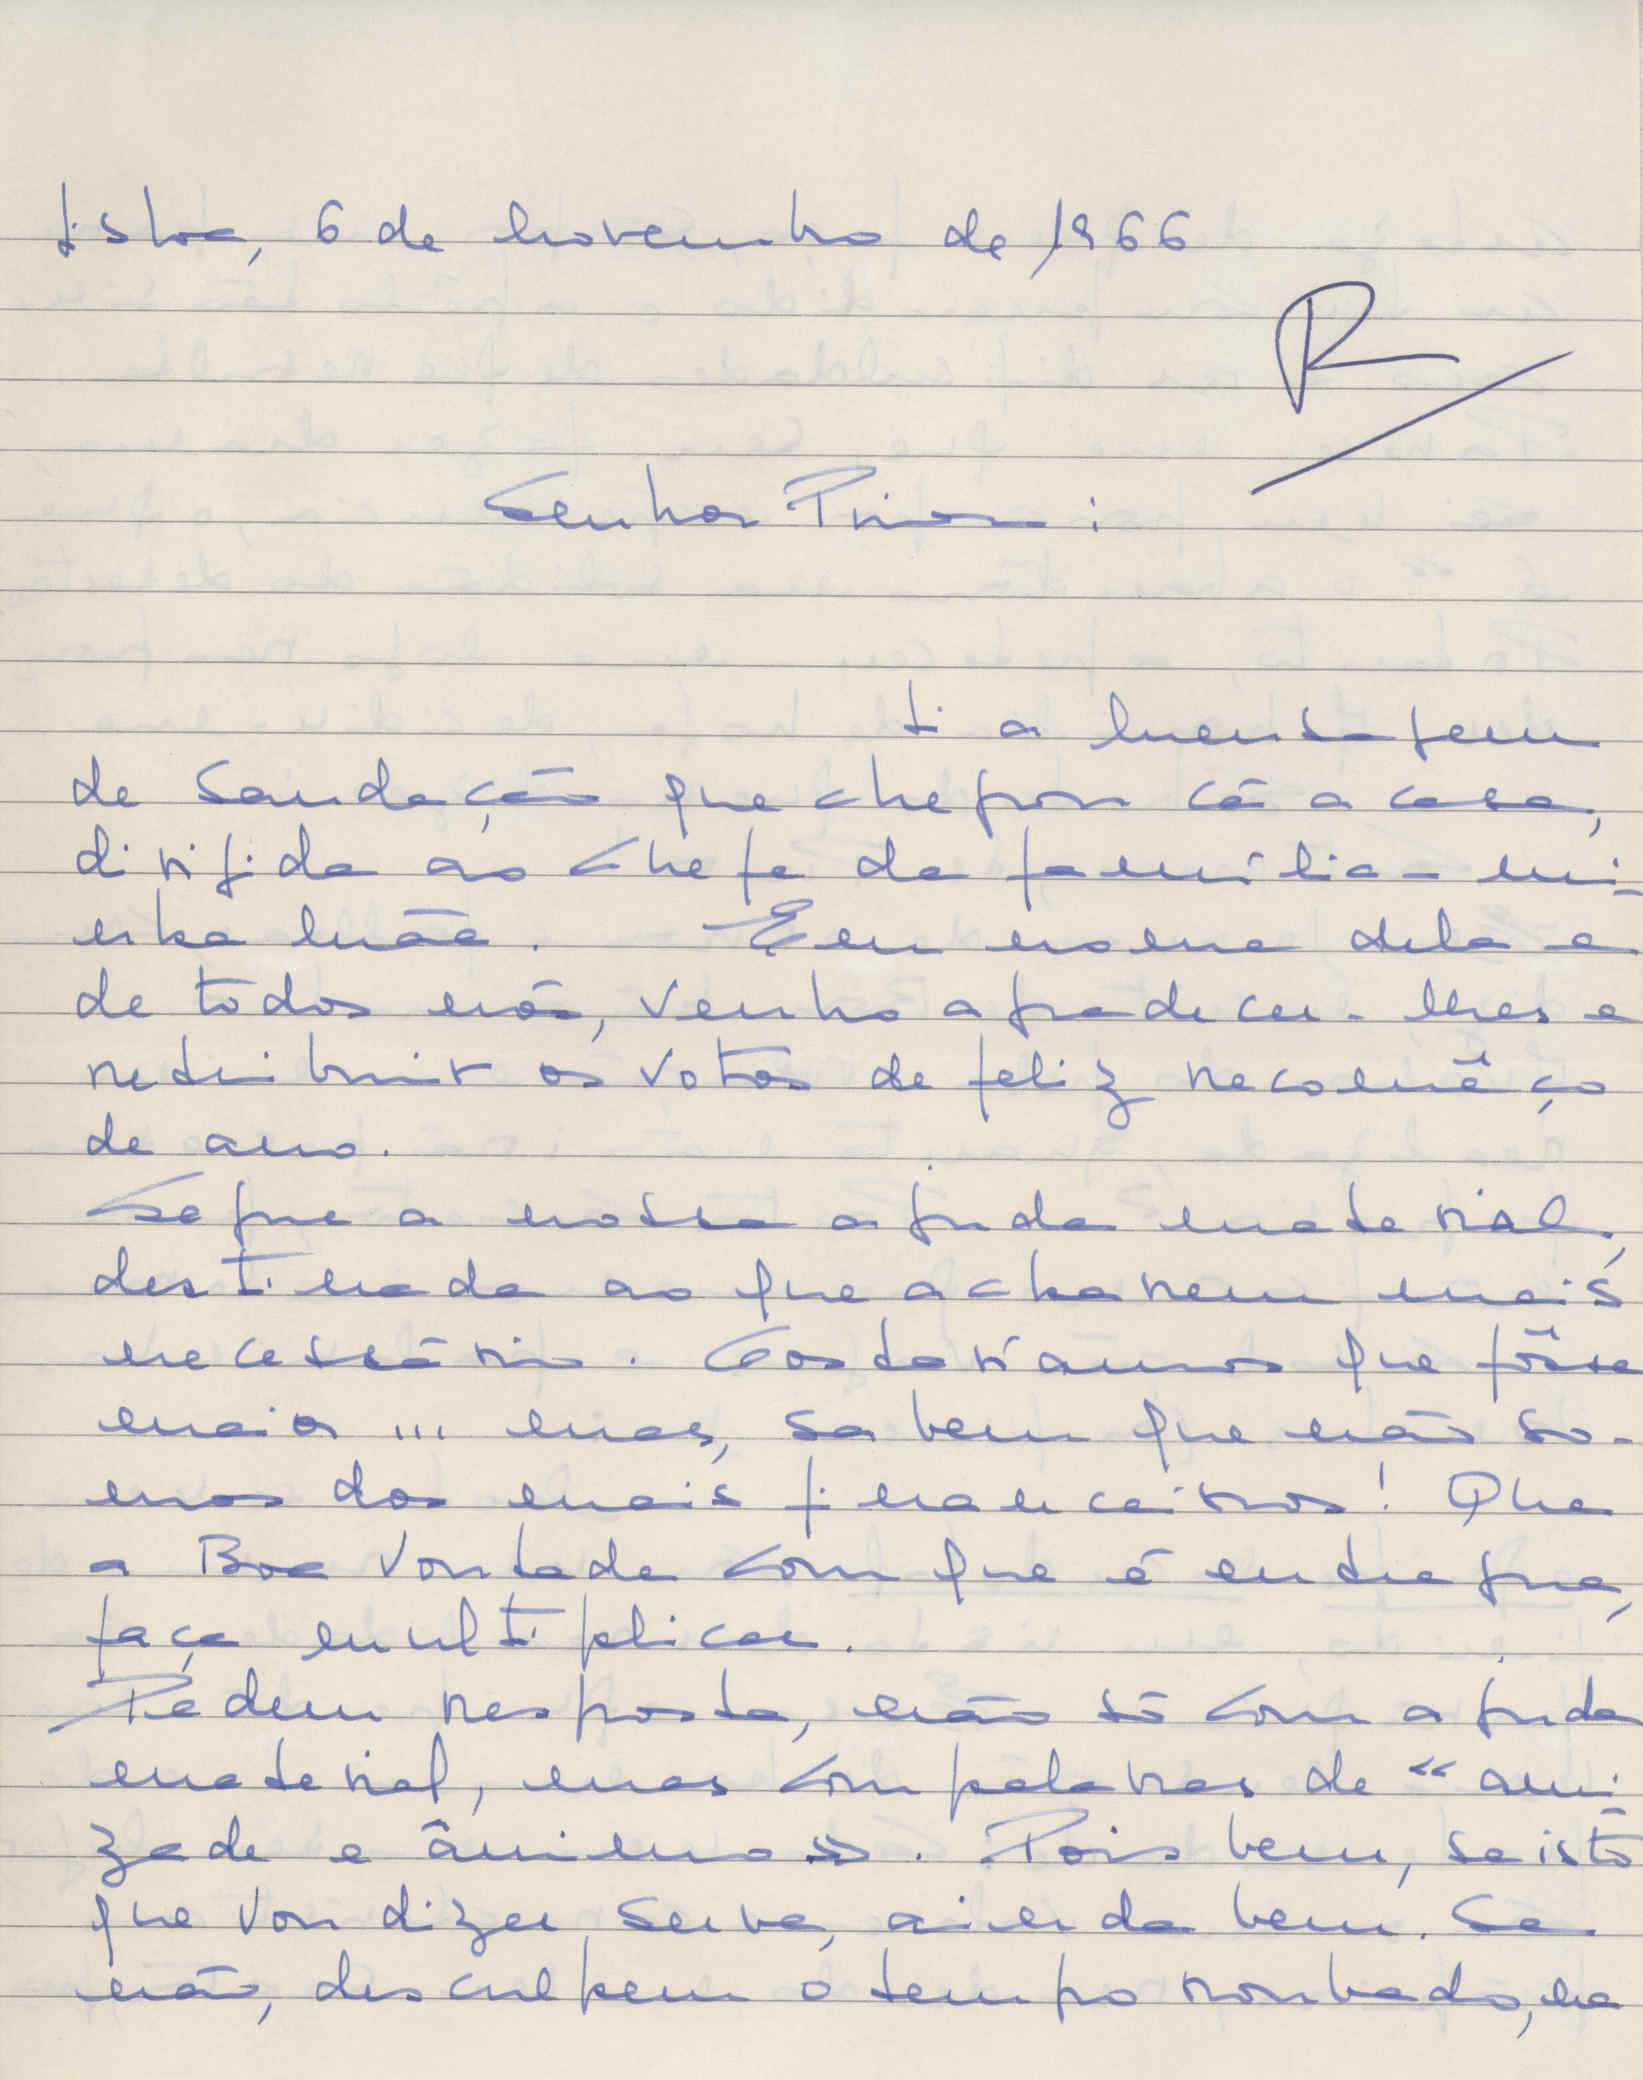 Lisboa, 6 de novembro de 1966
R
Senhor Prior:
Li a mensagem
de saudação que chegou cá a casa,
dirigida ao Chefe da família - mi-
nha mãe. Em nome dela e
de todos nós, venho agradecer-lhes e
retribuir os votos de feliz recomêço
de ano.
Segue a nossa ajuda material,
destinada ao que acharem mais
necessário. Gostaríamos que fôsse
maior ... mas, sabem que não so-
mos dos mais financeiros! Que
a Boa Vontade com que é entregue,
faça multiplicar.
Pedem resposta, não só com ajuda
material, mas com palavras de "ami-
zade e ânimo". Pois bem, se isto
que vou dizer serve, ainda bem. Se
não, desculpem o tempo roubado, na